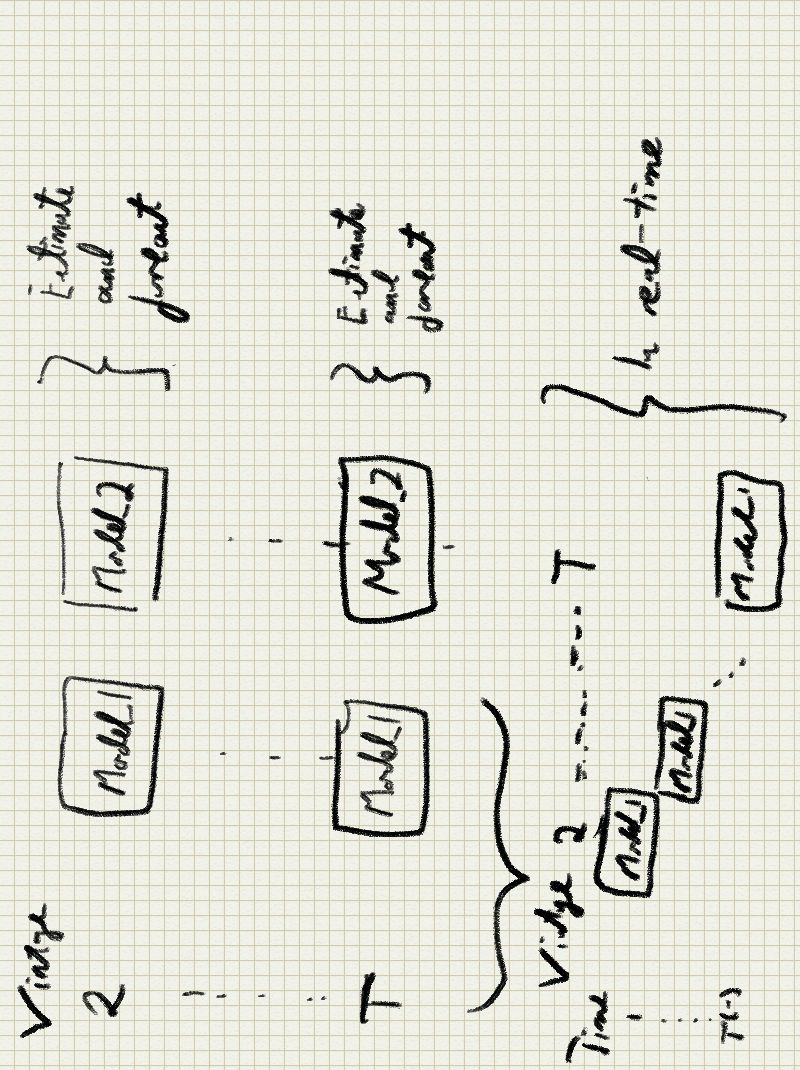 Vintge
2 Model_1 Model_2 Estimate
and
forecast
T Model_1 Model_2 Estimate
and
forecast
Vintge 2 T
Time Model_1
Model_1
T(-) Model_1
In real-time